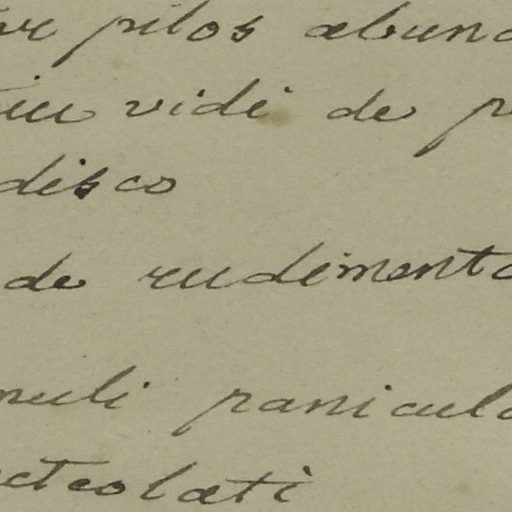 pilos abund
vidi de p
disco
de rudimento
nuli panicul
cteolati